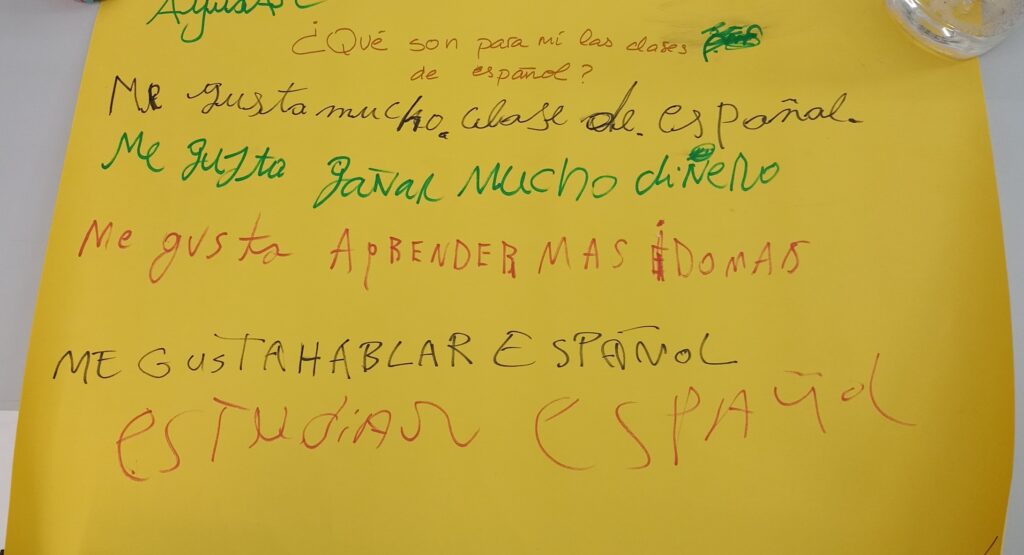 ¿Qué son para mi las clases
de español?
Me gusta mucho. clase de. españal.
Me gusta gañar mucho diñero
Me gusta APRENDER MAS iDOMAS
ME GUSTA HABLAR ESPAÑOL
ESTUDiAR ESPAÑOL